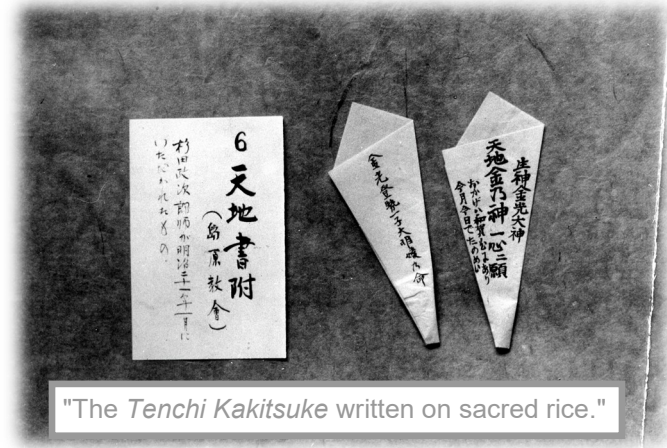 6 天地書附
(島原教會)
杉田政次郎師が明治二十年一月に
いただかれたもの。
金光 一子大明 乃命
生神金光大神
天地金乃神一心ニ願
おかげハ和賀心にあり
今月今日でたのめい
"The Tenchi Kakitsuke written on sacred rice."